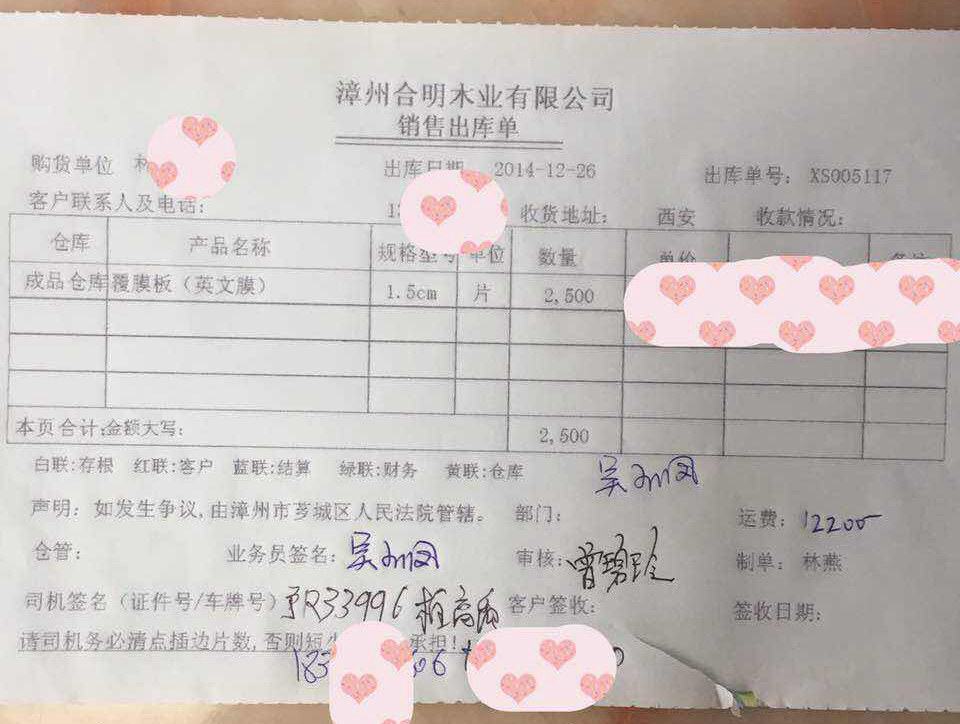 漳州合明木业有限公司
销售出库单
购货单位 出库日期 2014-12-26 出库单号: XS005117
客户联系人及电话: 收货地址: 西安 收款情况:
仓库 产品名称 规格型号 单位 数量 单价
成品仓库 覆膜板(英文膜) 1.5cm 片 2,500
本页合计:金额大写: 2,500
白联:存根 红联:客户 蓝联:结算 绿联:财务 黄联:仓库
声明: 如发生争议,由漳州市芗城区人民法院管辖。 部门: 运费: 12200
仓管: 业务员签名: 审核: 曾碧玲 制单: 林燕
司机签名(证件号/车牌号) 豫R33996 客户签收: 签收日期:
请司机务必清点插边片数,否则短 承担!